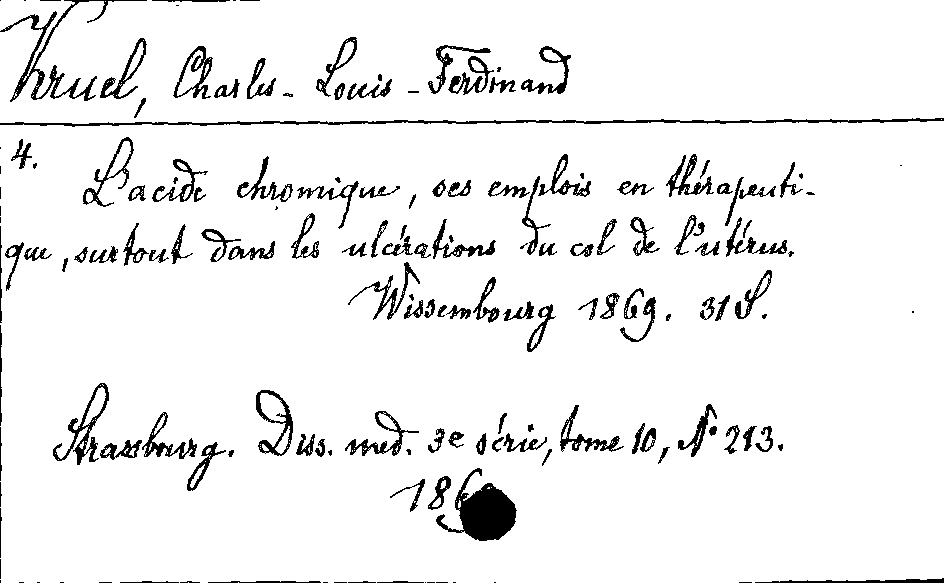 Kruel, Charles-Louis-Ferdinand
4.
L'acide chromique, ses emplois en thérapeuti-
que, surtout dans les ulcérations du col de l'utérus.
Wissembourg 1869. 31 S.
Strassbourg. Diss. med. 3e série, tome 10, No 213.
1869